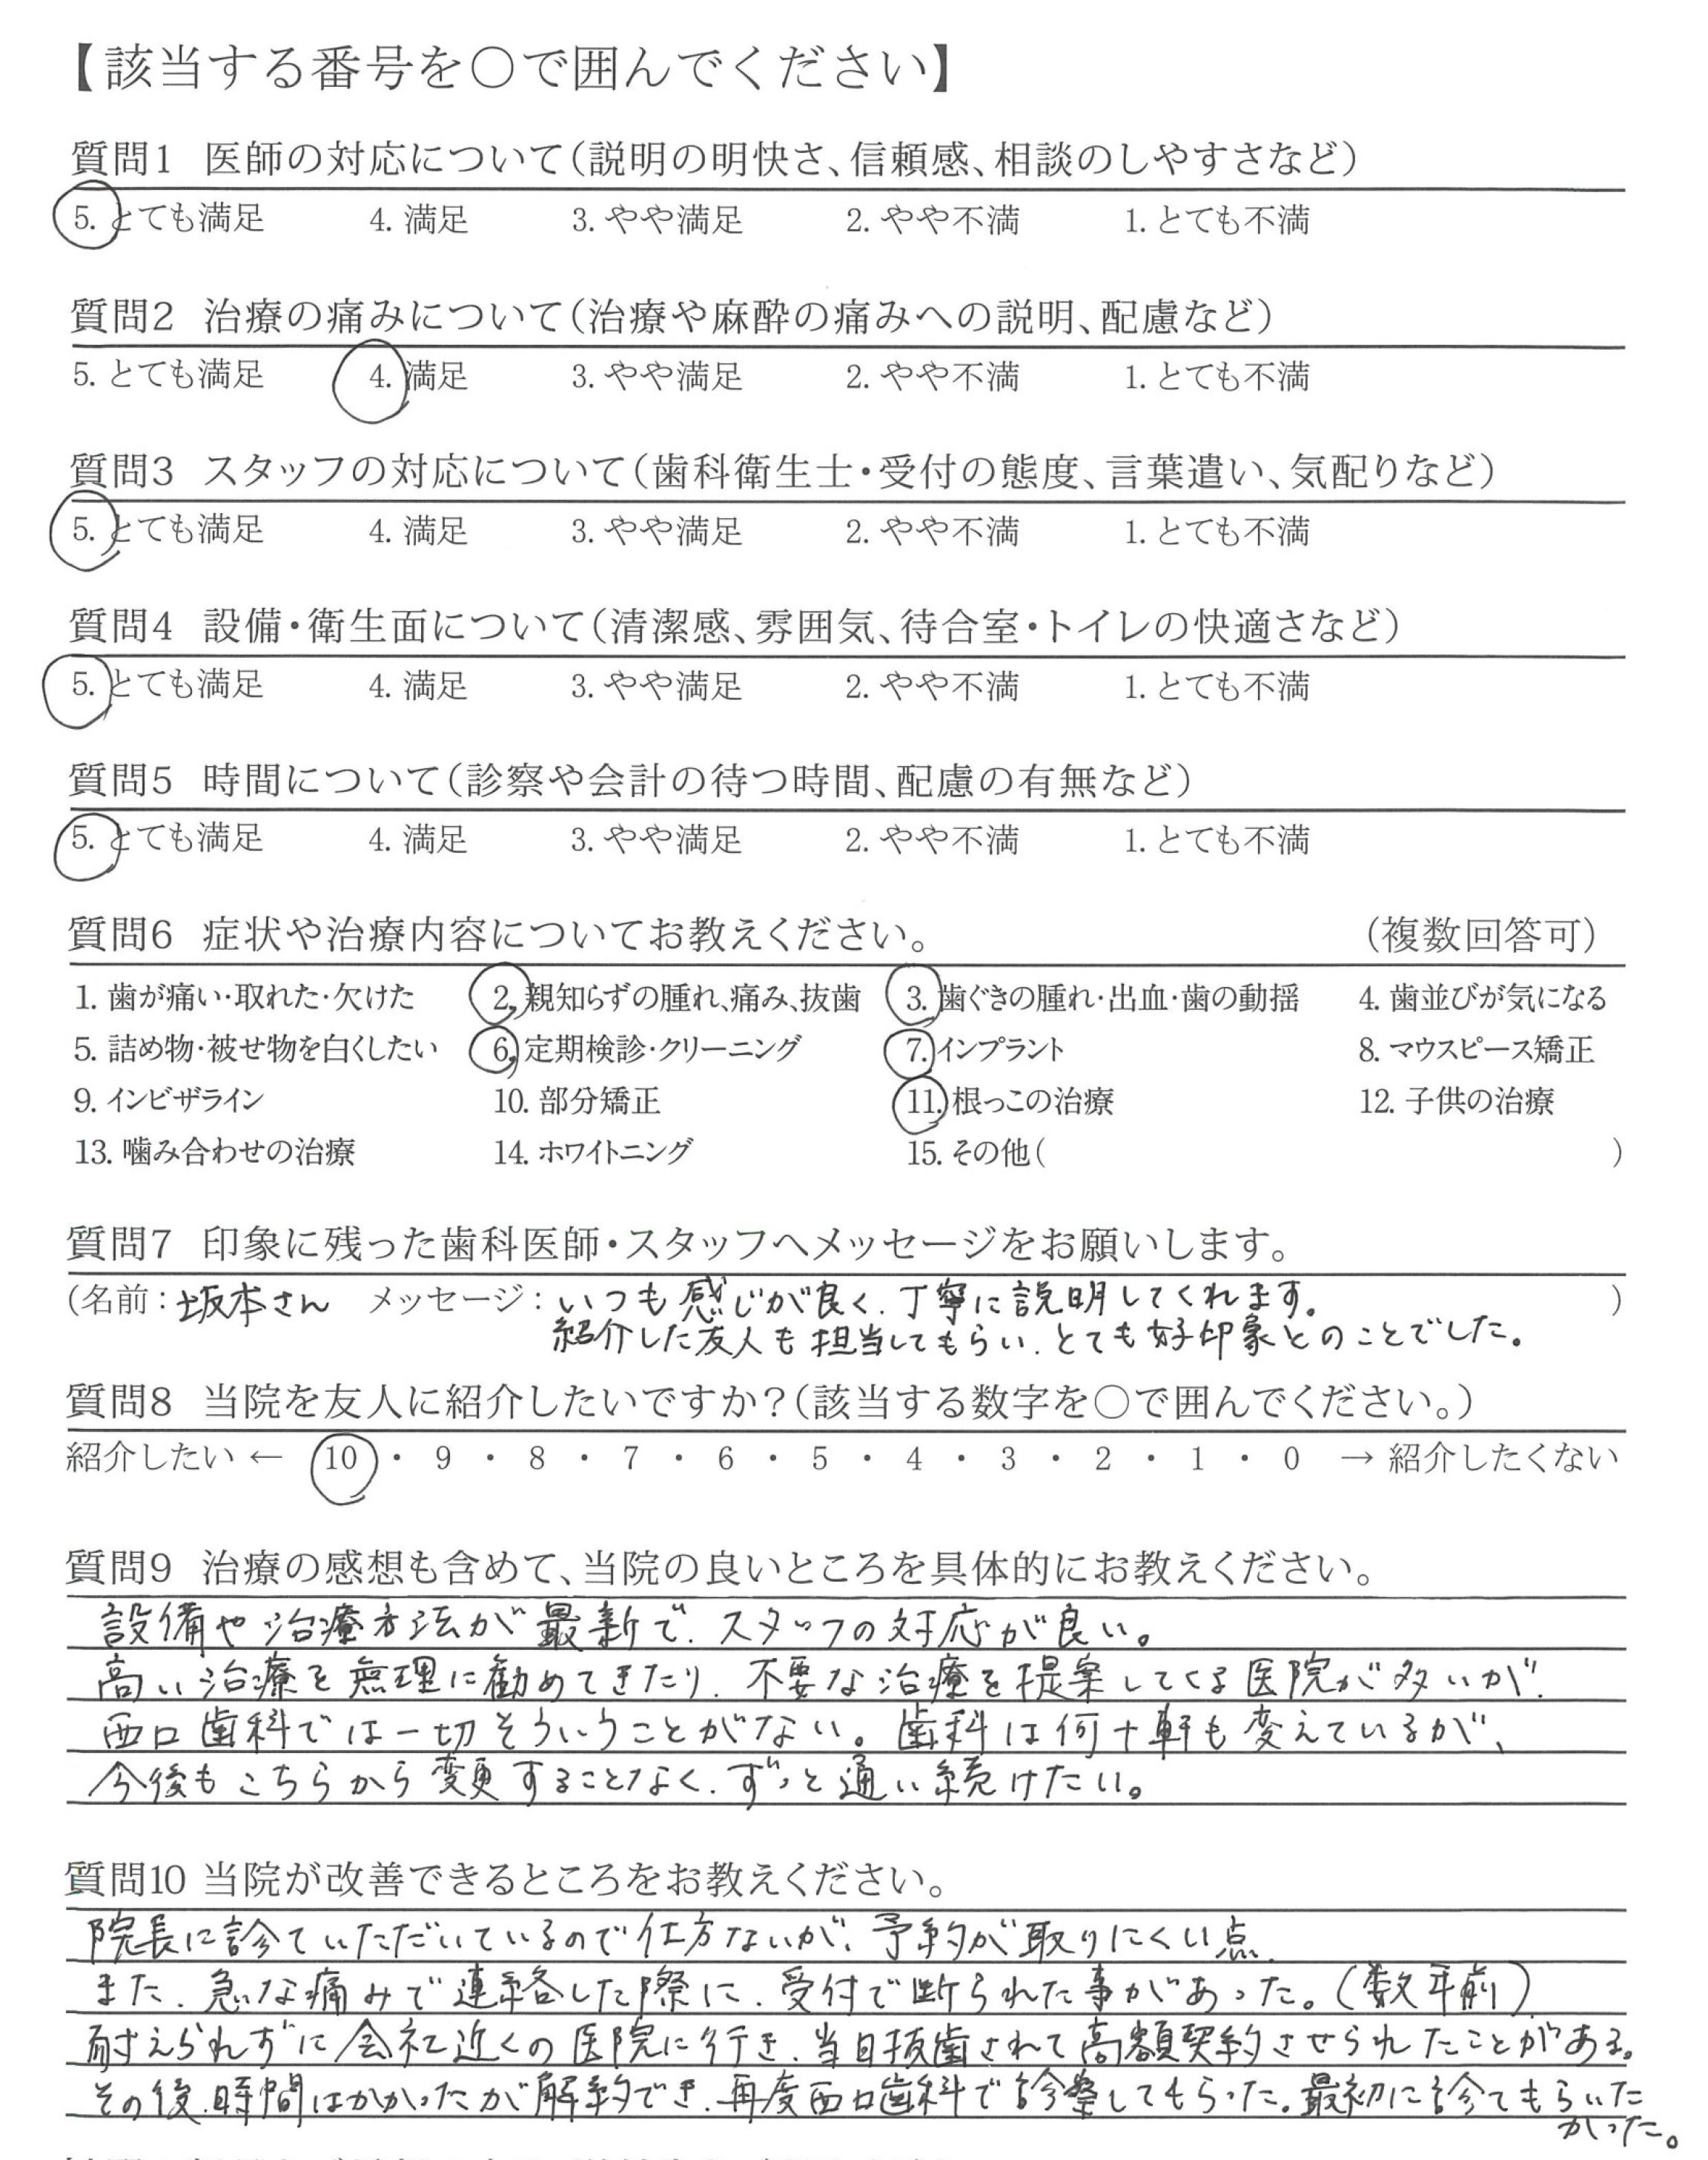 【該当する番号を○で囲んでください】
質問1 医師の対応について(説明の明快さ、信頼感、相談のしやすさなど)
5. とても満足 4. 満足 3. やや満足 2. やや不満 1. とても不満
質問2 治療の痛みについて(治療や麻酔の痛みへの説明、配慮など)
5. とても満足 4. 満足 3. やや満足 2. やや不満 1. とても不満
質問3 スタッフの対応について(歯科衛生士・受付の態度、言葉遣い、気配りなど)
5. とても満足 4. 満足 3. やや満足 2. やや不満 1. とても不満
質問4 設備・衛生面について(清潔感、雰囲気、待合室・トイレの快適さなど)
5. とても満足 4. 満足 3. やや満足 2. やや不満 1. とても不満
質問5 時間について(診察や会計の待つ時間、配慮の有無など)
5. とても満足 4. 満足 3. やや満足 2. やや不満 1. とても不満
質問6 症状や治療内容についてお教えください。 (複数回答可)
1. 歯が痛い・取れた・欠けた 2. 親知らずの腫れ、痛み、抜歯 3. 歯ぐきの腫れ・出血・歯の動揺 4. 歯並びが気になる
5. 詰め物・被せ物を白くしたい 6. 定期検診・クリーニング 7. インプラント 8. マウスピース矯正
9. インビザライン 10. 部分矯正 11. 根っこの治療 12. 子供の治療
13. 噛み合わせの治療 14. ホワイトニング 15. その他( )
質問7 印象に残った歯科医師・スタッフへメッセージをお願いします。
(名前:坂本さん メッセージ:いつも感じが良く、丁寧に説明してくれます。 )
紹介した友人も担当してもらい、とても好印象とのことでした。
質問8 当院を友人に紹介したいですか?(該当する数字を○で囲んでください。)
紹介したい ← 10 ・ 9 ・ 8 ・ 7 ・ 6 ・ 5 ・ 4 ・ 3 ・ 2 ・ 1 ・ 0 → 紹介したくない
質問9 治療の感想も含めて、当院の良いところを具体的にお教えください。
設備や治療方法が最新で、スタッフの対応が良い。
高い治療を無理に勧めてきたり、不要な治療を提案してくる医院が多いが、
西口歯科では一切そういうことがない。歯科は何十軒も変えているが、
今後もこちらから変更することなく、ずっと通い続けたい。
質問10 当院が改善できるところをお教えください。
院長に診ていただいているので仕方ないが、予約が取りにくい点、
また、急な痛みで連絡した際に、受付で断られた事があった。(数年前)
耐えられずに会社近くの医院に行き、当日抜歯されて高額契約させられたことがある。
その後、時間はかかったが解約でき、再度西口歯科で診察してもらった。最初に診てもらいた
かった。